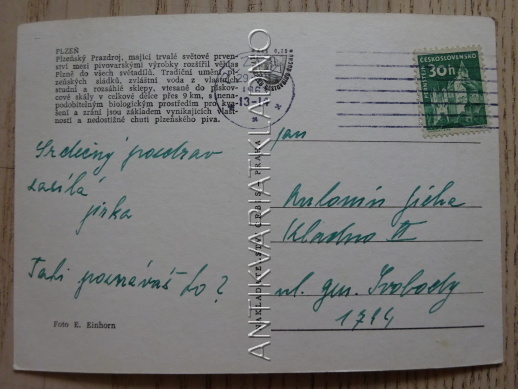 PLZEŇ
Plzeňský Prazdroj, mající trvalé světové prven-
ství mezi pivovarskými výrobky rozšířil věhlas
Plzně do všech světadílů. Tradiční umění pl-
zeňských sládků, zvláštní voda z vlastních
studní a rozsáhlé sklepy, vtesané do pískov-
cové skály v celkové délce přes 9 km, s nena-
podobitelným biologickým prostředím pro kva-
šení a zrání jsou základem vynikajících vlast-
ností a nedostižné chuti plzeňského piva.
Srdečný pozdrav
zasílá
jirka
Tak poznáváš to?
Foto E. Einhorn
ANTIKVARIATKLADNO
PRAHA
ČESKOSLOVENSKO
30h
29
-13
jan
Kladno II
ul. gen. Svobody
1714